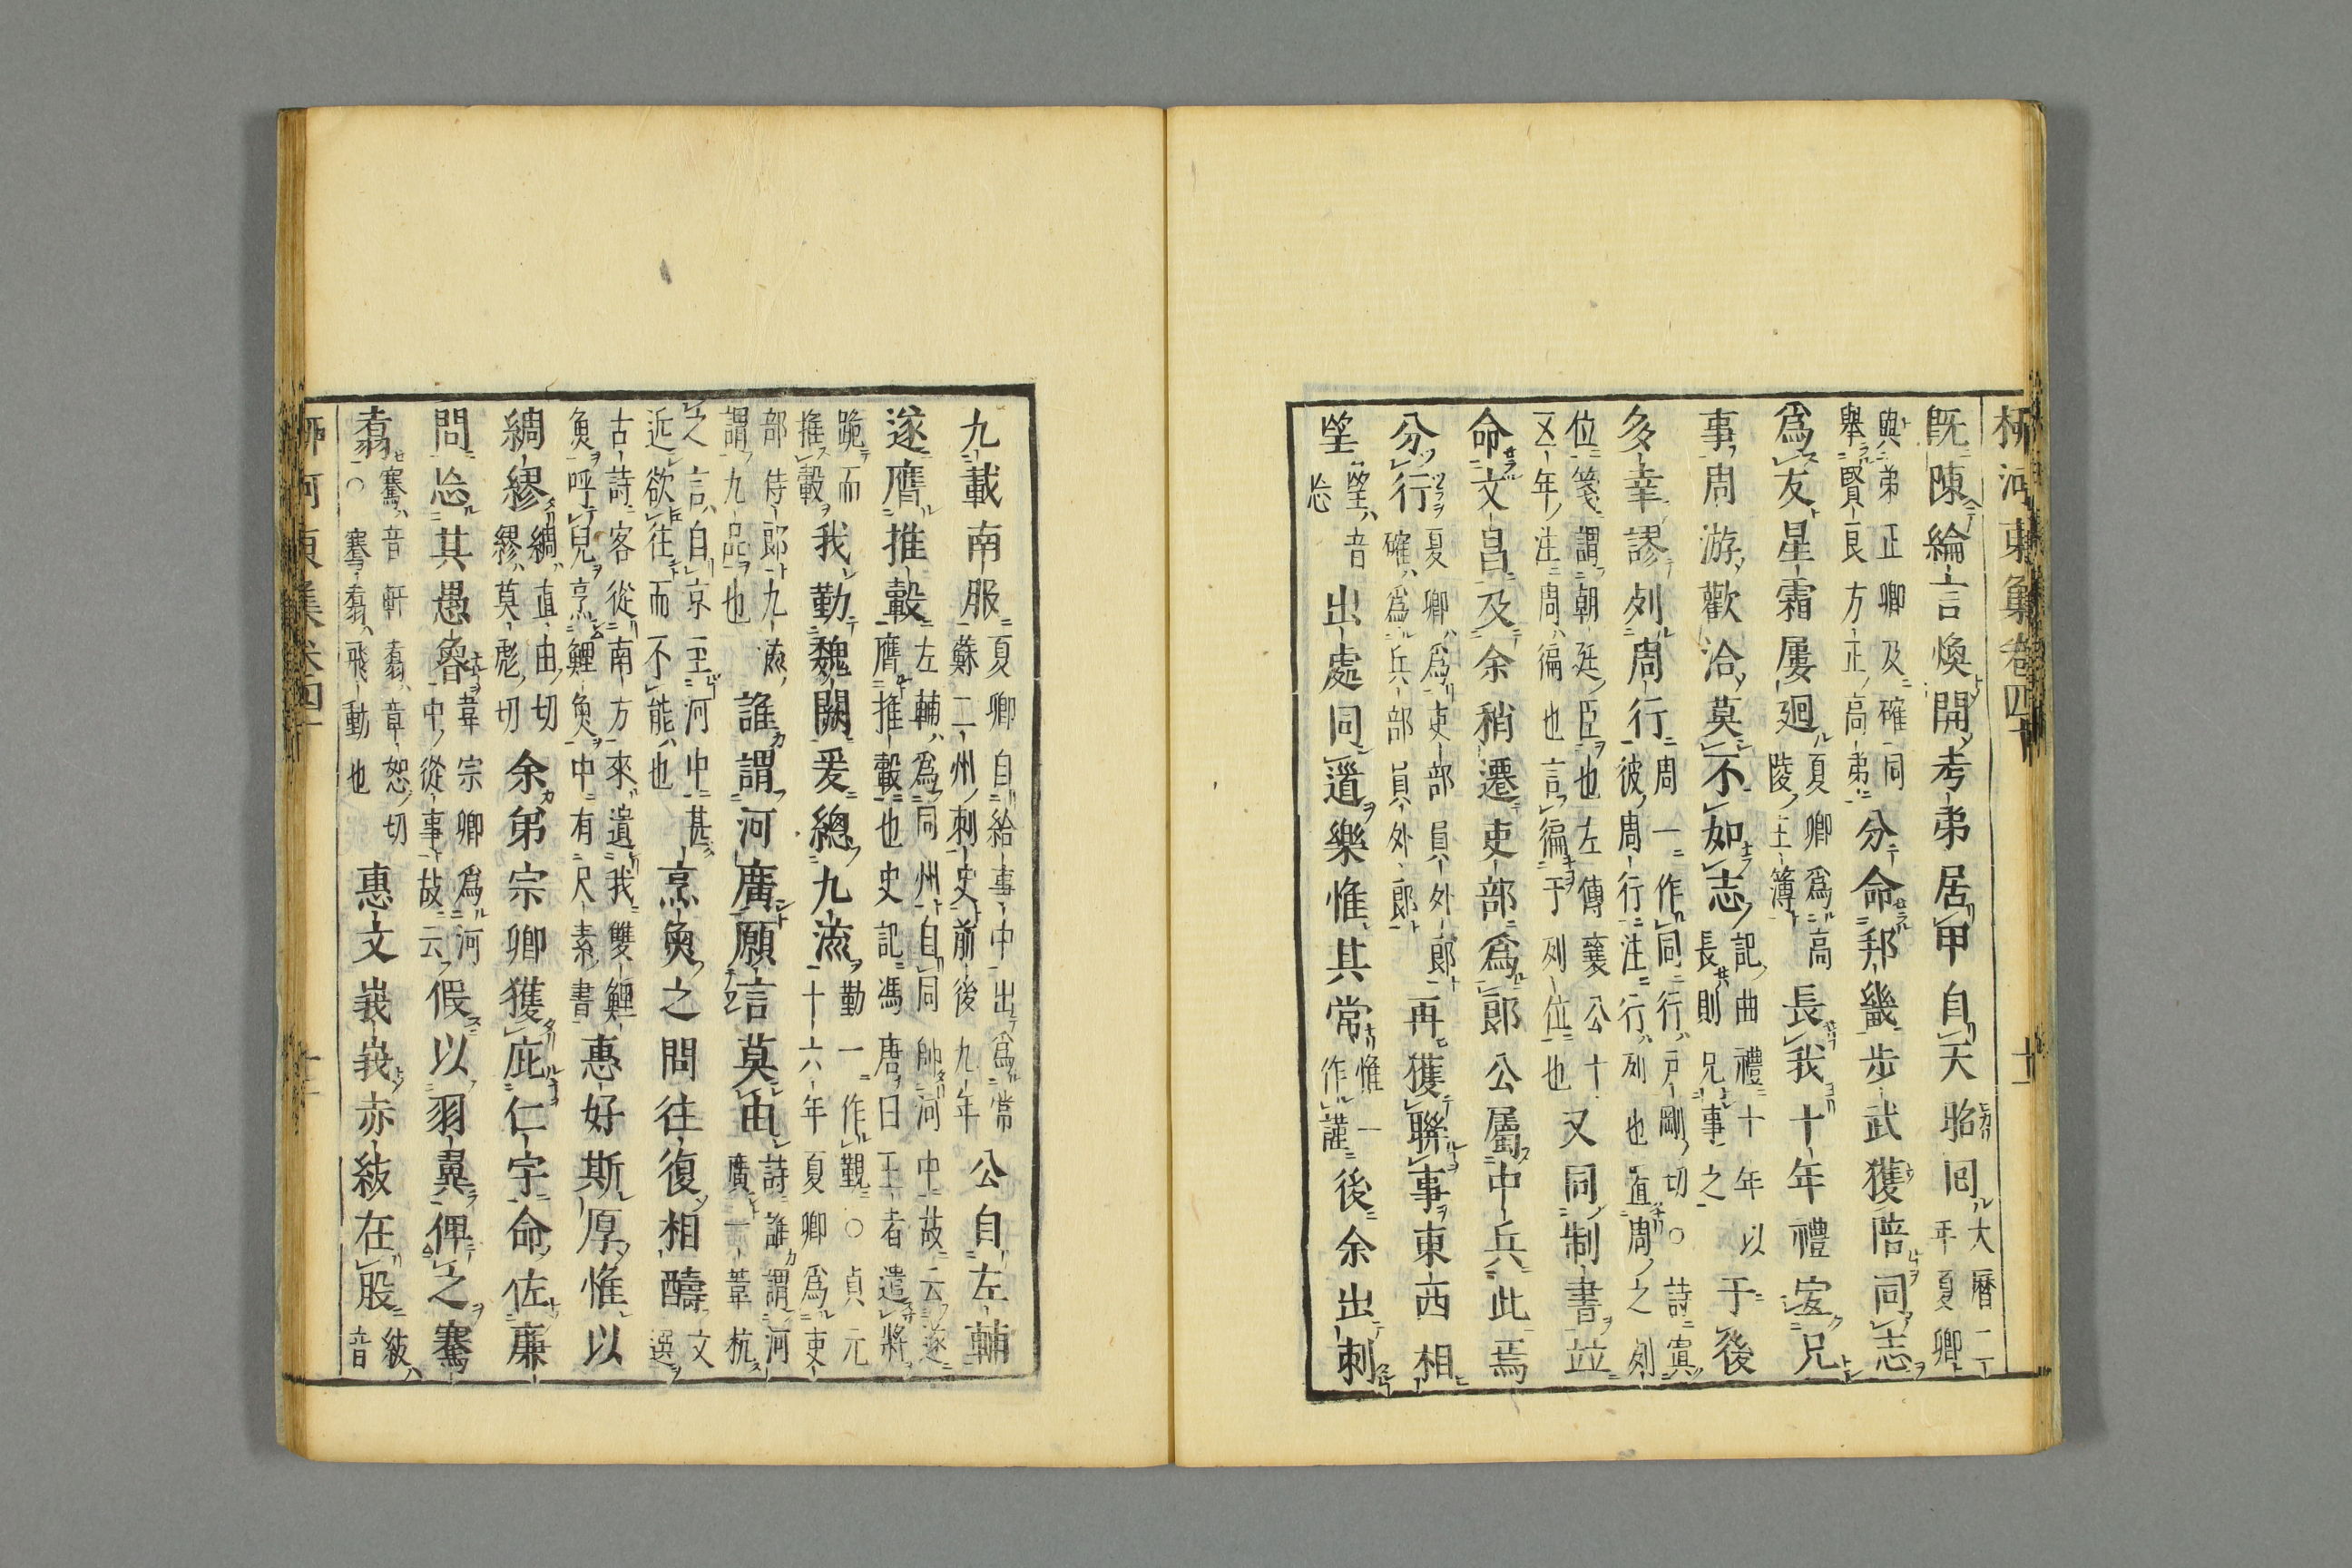 柳河東集卷四十 十二
既陳綸言煥開考弟居甲自天昭囘大曆二年夏卿
與弟正卿及確同舉賢良方正高弟分命邦畿步武獲陪同志
爲友星霜屢廻夏卿爲高陵主簿長我十年禮宐兄
事周游歡洽莫不如志記曲禮十年以長則兄事之于後
多幸謬列周行周一作同行戸剛切○詩寘彼周行注行列也直周之列
位箋謂朝廷臣也左傳襄公十五年注周徧也言徧于列位也又同制書竝
命文昌及余稍遷吏部爲郎公屬中兵此焉
分行夏卿爲吏部員外郎確爲兵部員外郎再獲聯事東西相
朢朢音忩出處同道樂惟其常惟一作謹後余出刺
九載南服夏卿自給事中出爲常蘇二州刺史前後九年公自左輔
遂膺推轂左輔爲同州自同帥河中故云遂膺推轂也史記馮唐曰王者遣將
跪而推轂我勤魏闕爰總九流勤一作覲○貞元十六年夏卿爲吏
部侍郎九流謂九品也誰謂河廣願言莫由詩誰謂河廣一葦杭
之言自京至河中甚近欲往而不能也烹魚之問往復相醻文選
古詩客從南方來遺我雙鯉魚呼兒烹鯉魚中有尺素書惠好斯厚惟以
綢繆綢直由切繆莫彪切余弟宗卿獲庇仁宇命佐亷
問忩其愚魯韋宗卿爲河中從事故云假以羽翼俾之騫
翥騫音軒翥章恕切○騫翥飛動也惠文峩峩赤紱在股紱音
柳河東集卷四十 十二